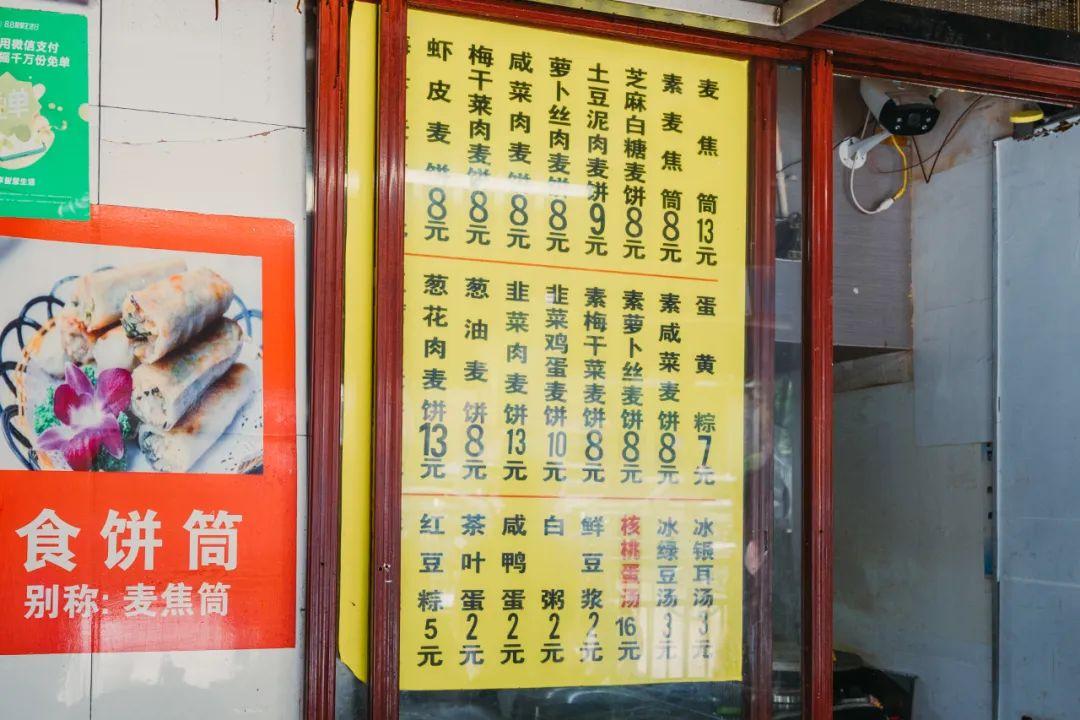 用微信支付
千万份免单
食饼筒
别称: 麦焦筒
麦焦筒13元
素麦焦筒8元
芝麻白糖麦饼8元
土豆泥肉麦饼9元
萝卜丝肉麦饼8元
咸菜肉麦饼8元
梅干菜肉麦饼8元
虾皮麦饼8元
蛋黄粽7元
素咸菜麦饼8元
素萝卜丝麦饼8元
素梅干菜麦饼8元
韭菜鸡蛋麦饼10元
韭菜肉麦饼13元
葱油麦饼8元
葱花肉麦饼13元
冰银耳汤3元
冰绿豆汤3元
核桃蛋汤16元
鲜豆浆2元
白粥2元
咸鸭蛋2元
茶叶蛋2元
红豆粽5元